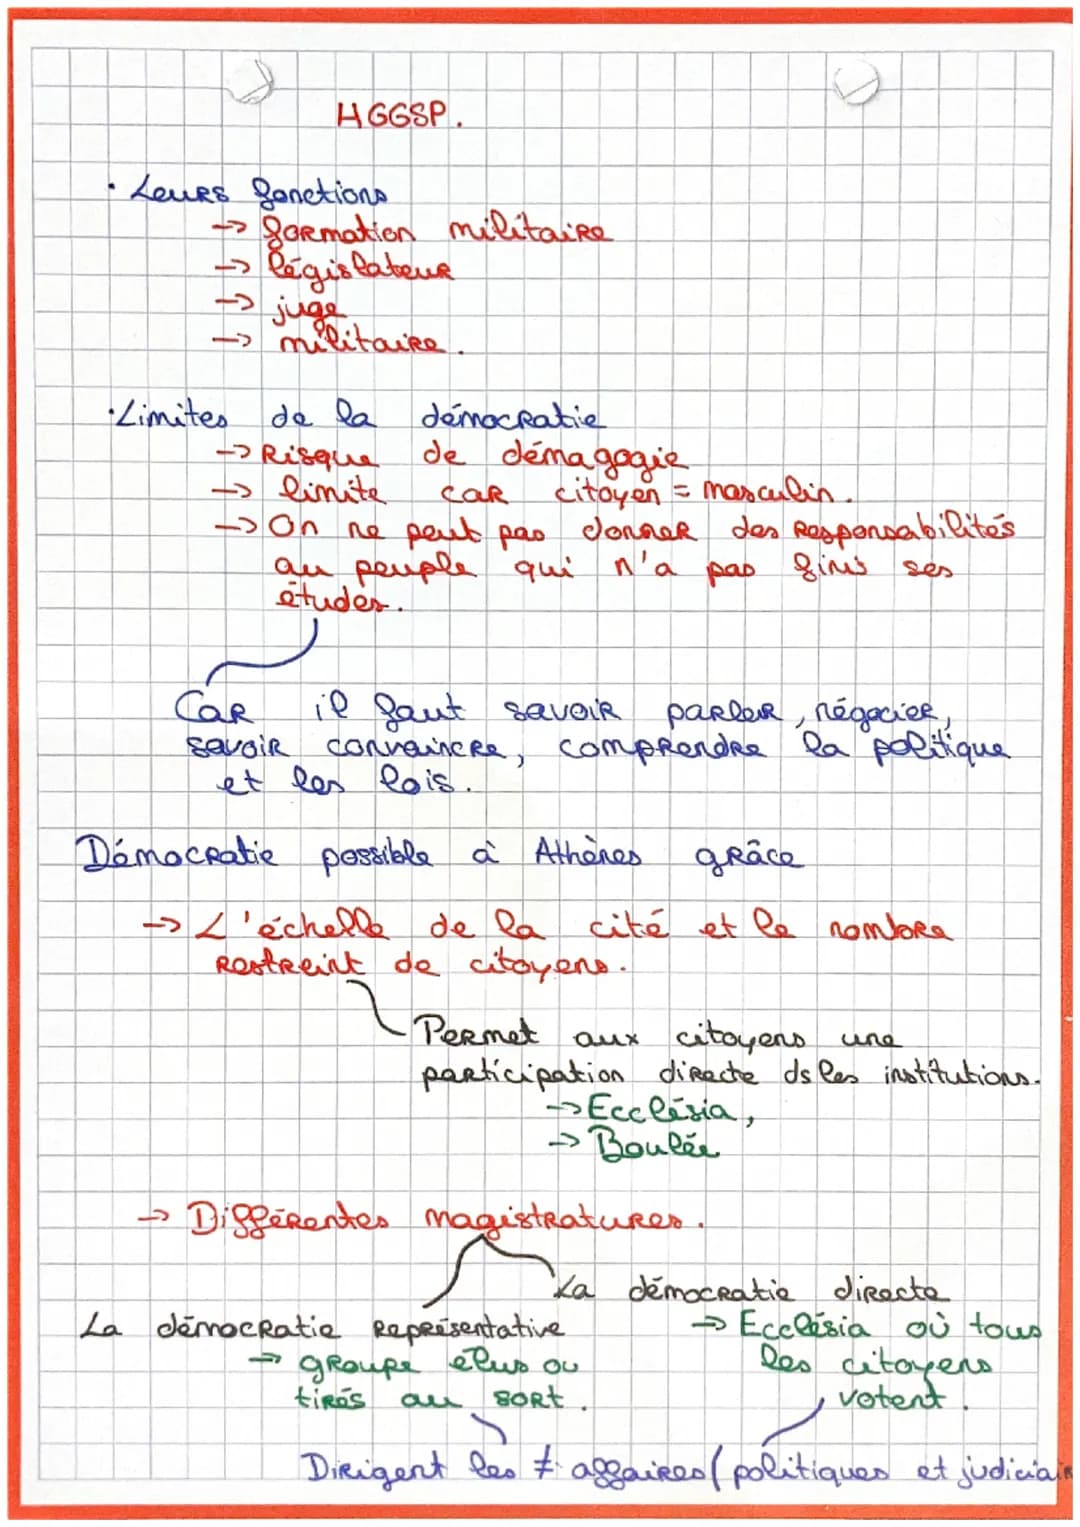 HGGSP.
· Leurs fonctions
-> formation militaire
-> législateur
-> juge
-> militaire.
· Limites de la démocratie
-> Risque de démagogie
-> limite car citoyen = masculin.
-> On ne peut pas donner des responsabilités
au peuple qui n'a pas finis ses
études.
Car il faut savoir parler, négocier,
savoir convaincre, comprendre la politique
et les lois.
Démocratie possible à Athènes grâce
-> L'échelle de la cité et le nombre
restreint de citoyens.
Permet aux citoyens une
participation directe ds les institutions.
-> Ecclésia,
-> Boulée
-> Différentes magistratures.
La démocratie directe
-> Ecclésia où tous
les citoyens
votent.
La démocratie représentative
-> groupe élus ou
tirés au sort.
Dirigent les ≠ affaires (politiques et judiciair